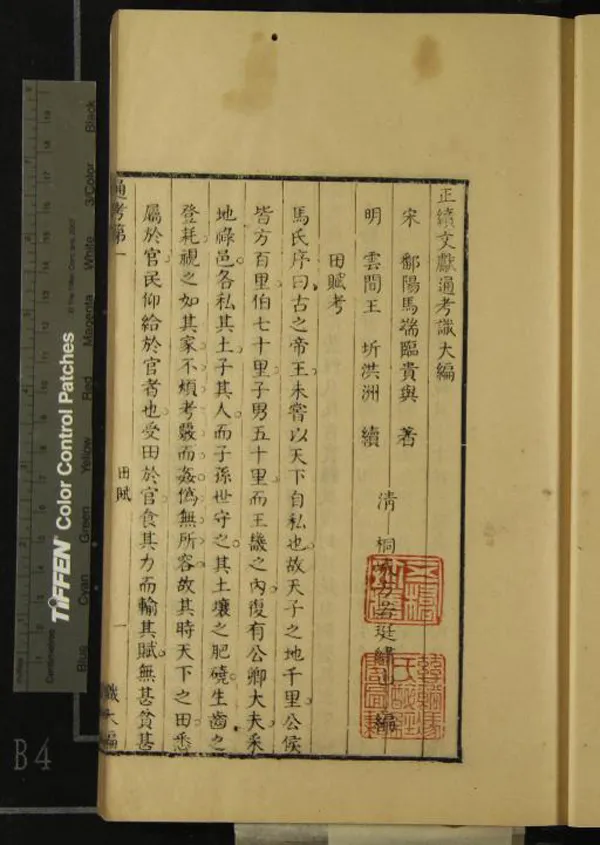 正續文獻通考識大編
宋 鄱陽馬端臨貴與 著
明 雲間王 圻洪洲 續
清 桐城方若珽 編
田賦考
馬氏序曰古之帝王未嘗以天下自私也故天子之地千里公侯
皆方百里伯七十里子男五十里而王畿之內復有公卿大夫采
地祿邑各私其土子其人而子孫世守之其土壤之肥磽生齒之
登耗視之如其家不煩考覈而姦偽無所容故其時天下之田悉
屬於官民仰給於官者也受田於官食其力而輸其賦無甚貧甚
通考第一
田賦
一
識大編
B4
TIFFEN Color Control Patches
Blue
Cyan
Green
Yellow
Red
Magenta
White
3/Color
Black
Centimetres